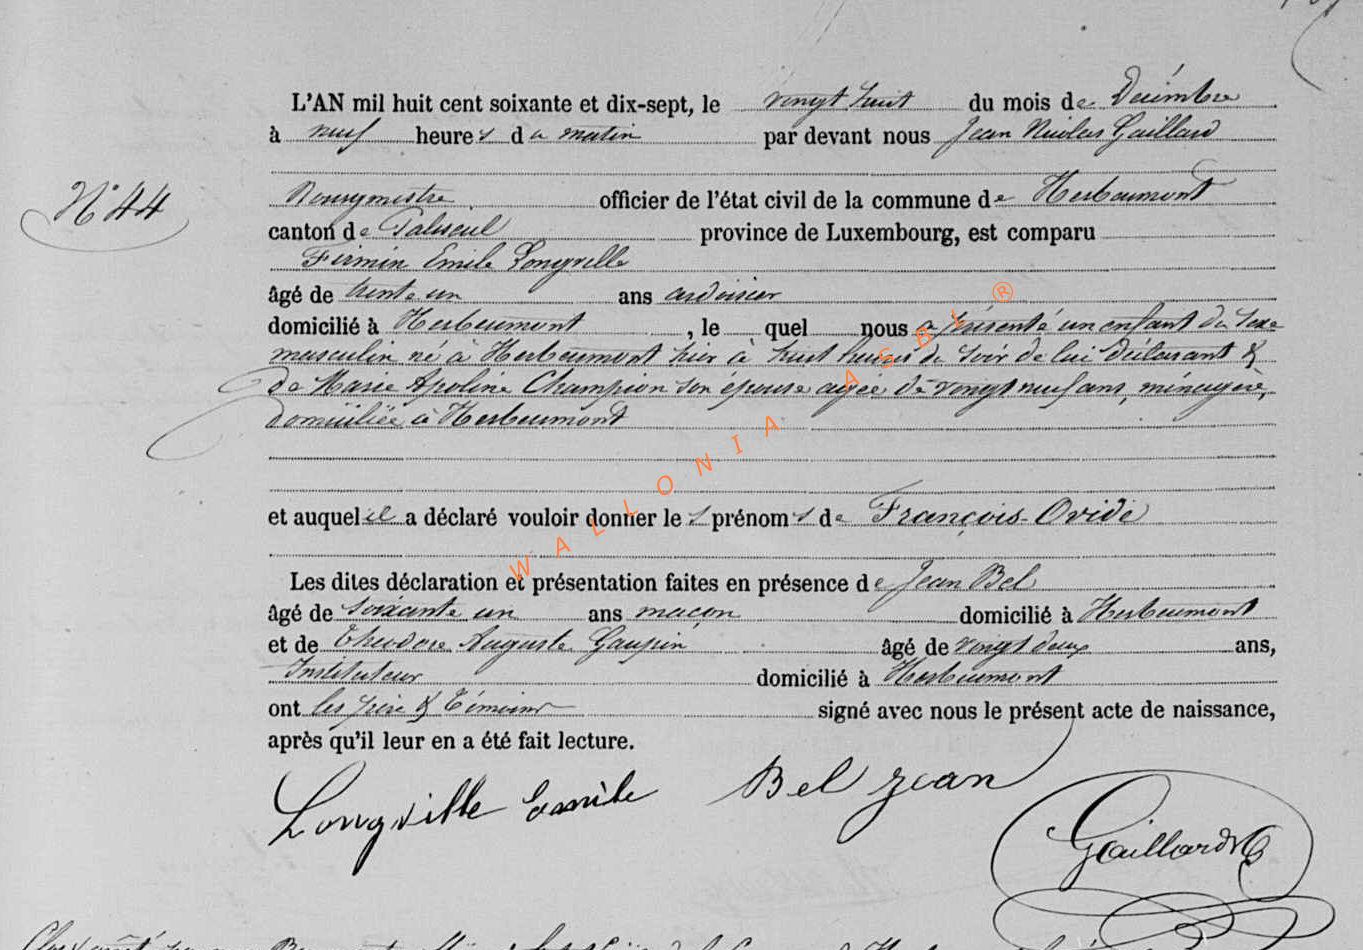 L'AN mil huit cent soixante et dix-sept, le vingt huit du mois de Décembre
à neuf heures du matin par devant nous Jean Nicolas Gaillard
N° 44
Bourgmestre officier de l'état civil de la commune de Herbeumont
canton de Paliseul province de Luxembourg, est comparu
Firmin Emile Longville
âgé de trente un ans ardoisier
domicilié à Herbeumont, le quel nous a présenté un enfant du sexe
masculin né à Herbeumont hier à huit heures du soir de lui déclarant &
de Marie Apoline Champion son épouse agée de vingt neuf ans, ménagère,
domiciliée à Herbeumont
et auquel il a déclaré vouloir donner les prénoms de François-Ovide
Les dites déclaration et présentation faites en présence de Jean Bel
âgé de soixante un ans maçon domicilié à Herbeumont
et de Théodore Auguste Gaupin âgé de vingt deux ans,
Instituteur domicilié à Herbeumont
ont les père & témoins signé avec nous le présent acte de naissance,
après qu'il leur en a été fait lecture.
Longville Emile Bel Jean
Gaillard
WALLONIA ASBL ®